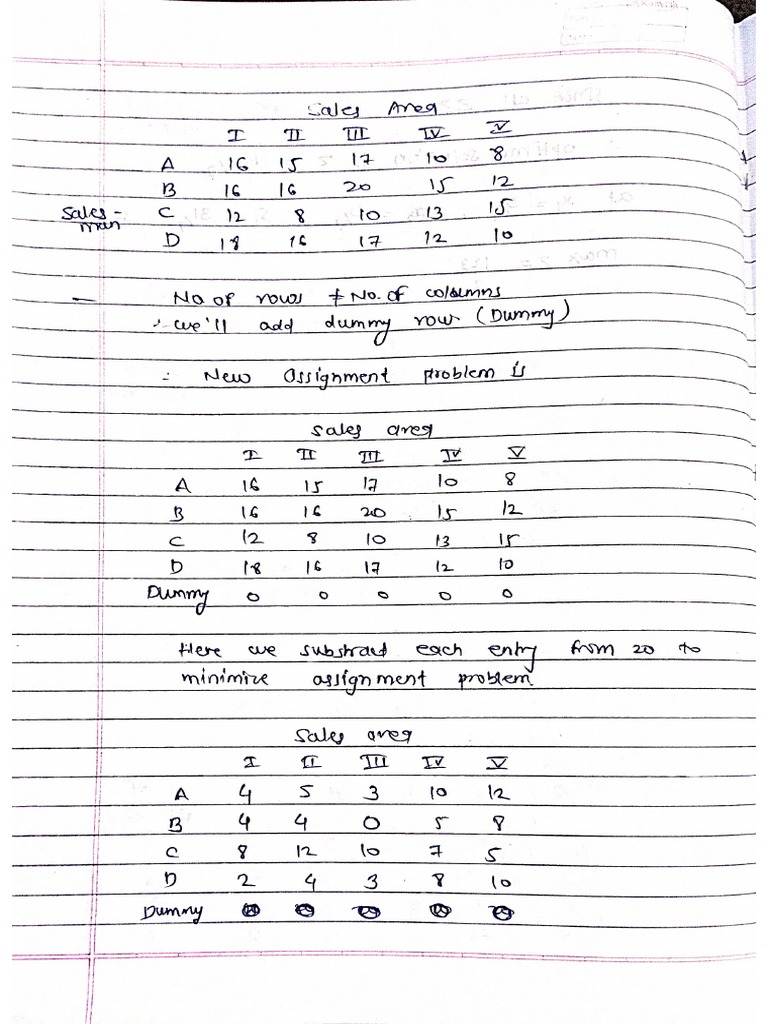 Sales Area
I II III IV V
A 16 15 17 10 8
B 16 16 20 15 12
Sales- C 12 8 10 13 15
man
D 18 16 17 12 10
— No. of rows ≠ No. of columns
∴ we'll add dummy row (Dummy)
∴ New assignment problem is
Sales area
I II III IV V
A 16 15 17 10 8
B 16 16 20 15 12
C 12 8 10 13 15
D 18 16 17 12 10
Dummy 0 0 0 0 0
Here we substract each entry from 20 to
minimize assignment problem
Sales area
I II III IV V
A 4 5 3 10 12
B 4 4 0 5 8
C 8 12 10 7 5
D 2 4 3 8 10
Dummy